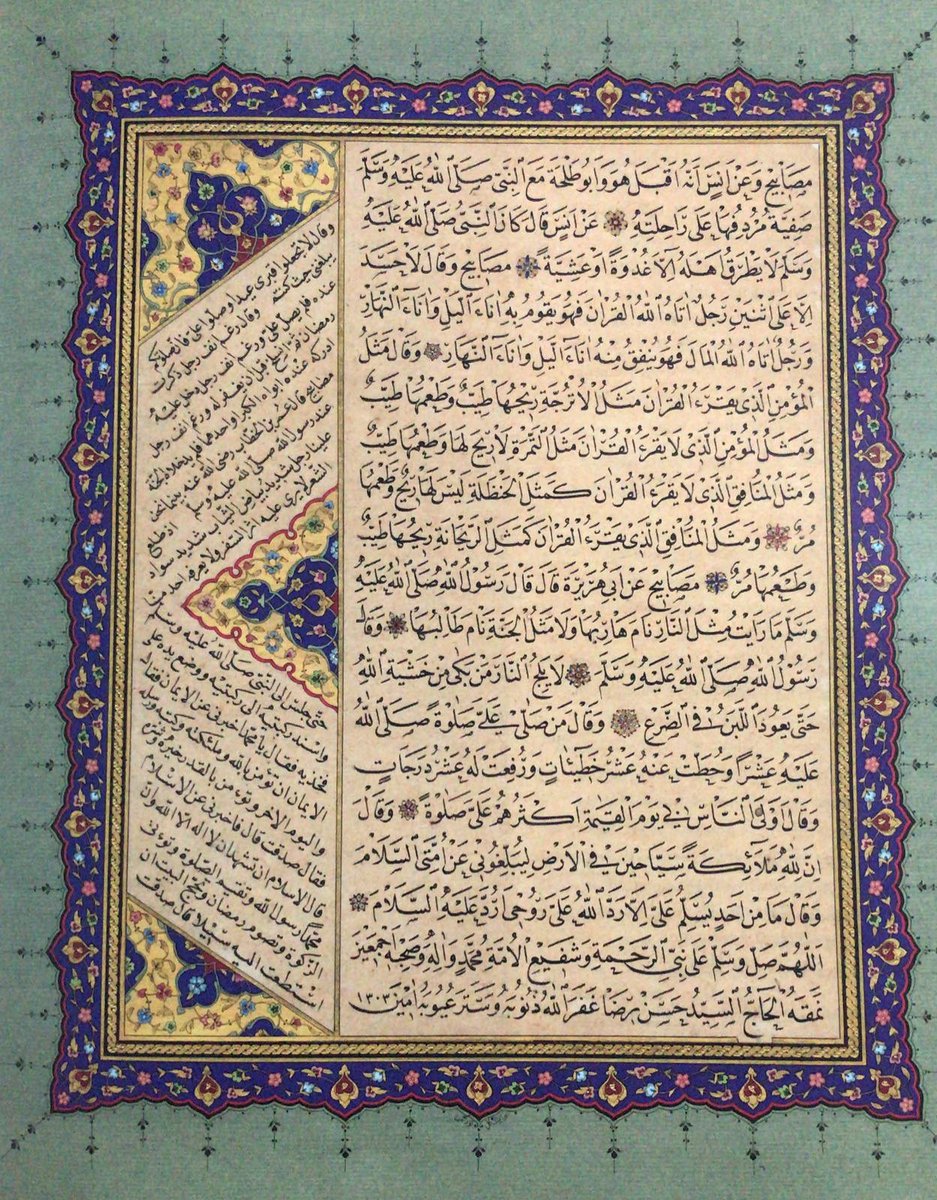 مصابيح وعن انس انه اقبل هو وابو طلحة مع النبى صلى الله عليه وسلم
صفية مردفها على راحلته عن انس قال كان النبى صلى الله عليه
وسلم لا يطرق اهله الا غدوة او عشية مصابيح وقال لا حسد
الا على اثنين رجل اتاه الله القران فهو يقوم به اناء اليل واناء النهار
ورجل اتاه الله المال فهو ينفق منه اناء اليل واناء النهار وقال مثل
المؤمن الذى يقرء القران مثل الاترجة ريحها طيب وطعمها طيب
ومثل المؤمن الذى لا يقرء القران مثل التمرة لا ريح لها وطعمها طيب
ومثل المنافق الذى لا يقرء القران كمثل الحنظلة ليس لها ريح وطعمها
مر ومثل المنافق الذى يقرء القران كمثل الريحانة ريحها طيب
وطعمها مر مصابيح عن ابى هريرة قال قال رسول الله صلى الله عليه
وسلم ما رايت مثل النار نام هاربها ولا مثل الجنة نام طالبها وقال
رسول الله صلى الله عليه وسلم لا يلج النار من بكى من خشية الله
حتى يعود اللبن فى الضرع وقال من صلى على صلوة صلى الله
عليه عشرا وحطت عنه عشر خطيئات ورفعت له عشر درجات
وقال اولى الناس بى يوم القيمة اكثرهم على صلوة وقال
ان لله ملائكة سياحين فى الارض ليبلغونى عن امتى السلام
وقال ما من احد يسلم على الا رد الله على روحى ارد عليه السلام
اللهم صل وسلم على نبى الرحمة وشفيع الامة محمد واله وصحبه اجمعين
نمقه الحاج السيد حسن رضا غفر الله ذنوبه وستر عيوبه امين ١٣٠٣
وقال لا تجعلوا قبرى عيدا وصلوا على فان صلاتكم
تبلغنى حيث كنتم وقال رغم انف رجل ذكرت
عنده فلم يصل على ورغم انف رجل دخل عليه
رمضان ثم انسلخ قبل ان يغفر له ورغم انف رجل
ادرك عنده ابواه الكبر او احدهما فلم يدخلاه الجنة
مصابيح قال عمر بن الخطاب رضى الله عنه بينما نحن
عند رسول الله صلى الله عليه وسلم اذ طلع
علينا رجل شديد بياض الثياب شديد سواد
الشعر لا يرى عليه اثر السفر ولا يعرفه احد
حتى جلس الى النبى صلى الله عليه وسلم
واسند ركبتيه الى ركبتيه ووضع يديه على
فخذيه فقال يا محمد اخبرنى عن الايمان فقال
الايمان ان تؤمن بالله وملئكته وكتبه ورسله
واليوم الاخر وتؤمن بالقدر خيره وشره
فقال صدقت قال فاخبرنى عن الاسلام
قال الاسلام ان تشهد ان لا اله الا الله وان
محمدا رسول الله وتقيم الصلوة وتؤتى
الزكوة وتصوم رمضان وتحج البيت ان
استطعت اليه سبيلا قال صدقت